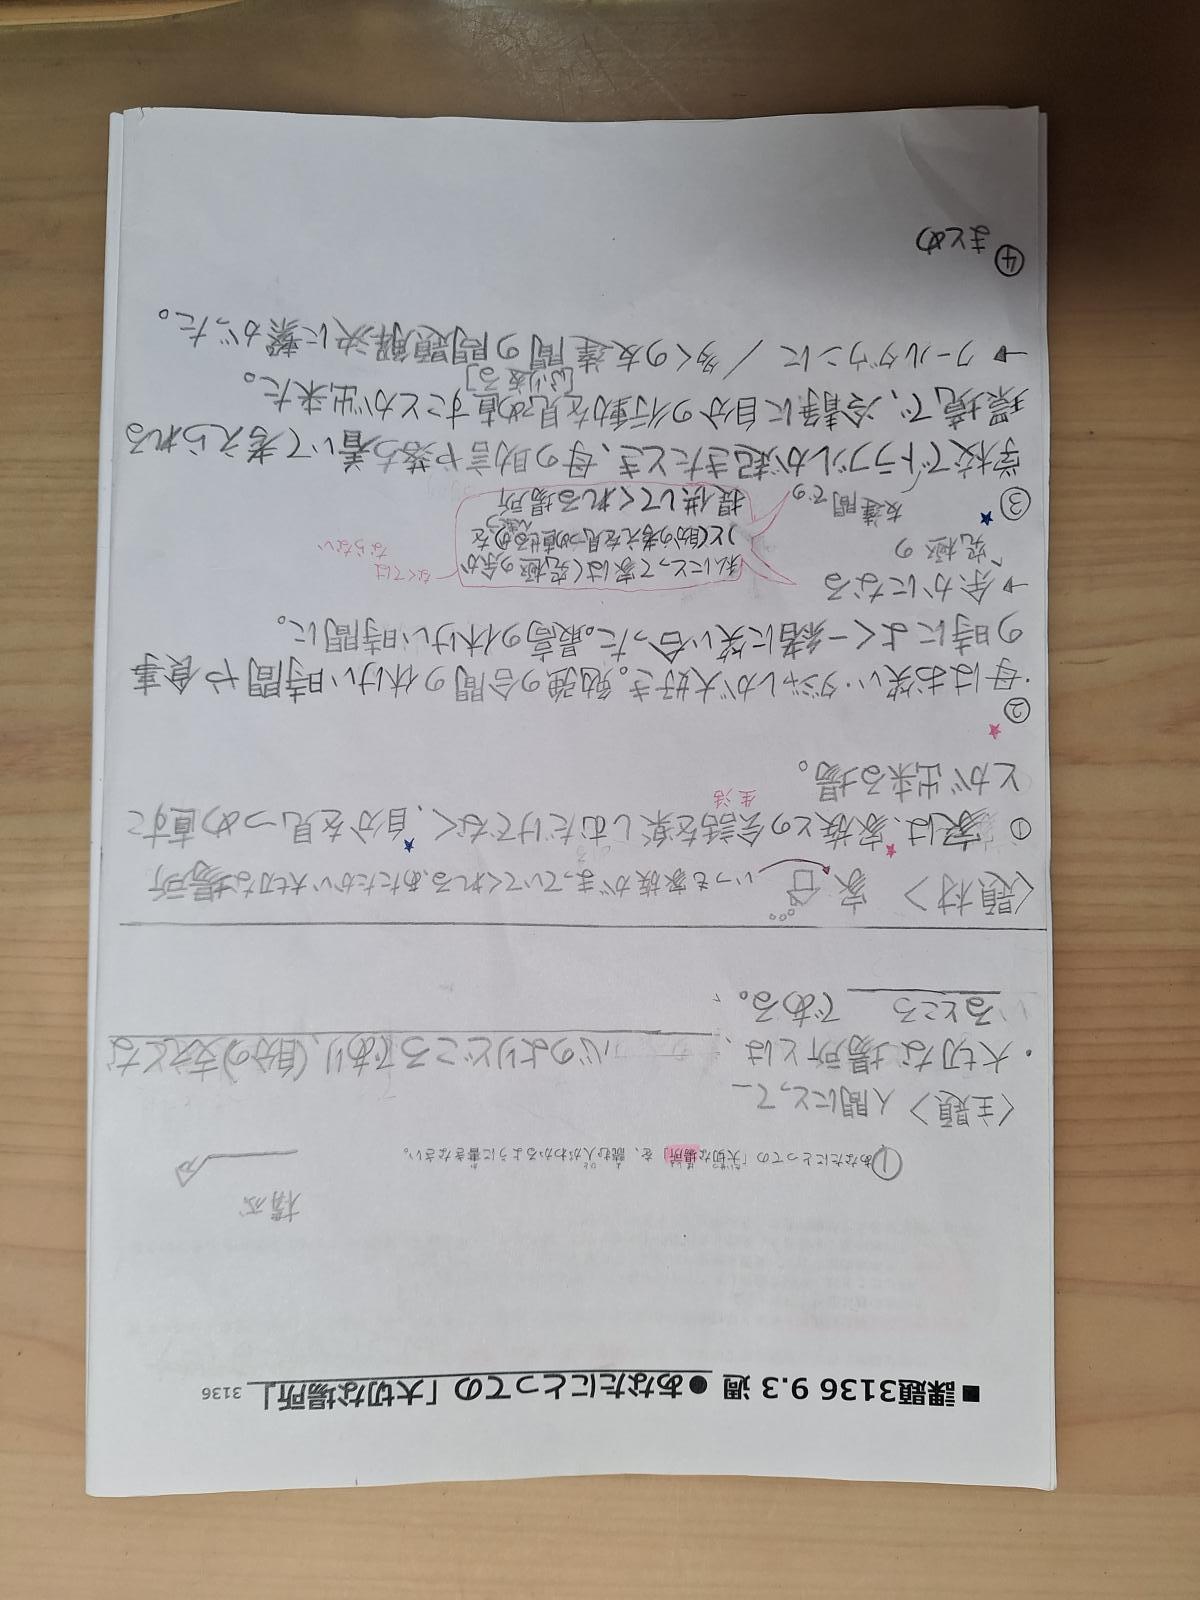 ■課題3136 9.3 週 ●あなたにとっての「大切な場所」 3136
構成
①あなたにとっての「大切な場所」を、読む人がわかるように書きなさい。
〈主題〉 人間にとって
・大切な場所とは、心のよりどころであり、(自分の)支えとな
るところ である。
〈題材〉 家 いつも家族がまっていてくれる、あたたかい大切な場所
① 家は、家族との会話を楽しむだけでなく、自分を見つめ直すこ
生活
とが出来る場。
②
・母はお笑い・ダジャレが大好き。勉強の合間の休けい時間や食事
の時によく一緒に笑い合った。最高の休けい時間に。
→余かになる
究極の
私にとって家は(究極の余か
)と(自分の考えを見つめ直せる)を
提供してくれる場所
なくては
ならない
③
友達間での
学校でトラブルが起きたとき、母の助言や落ち着いて考えられる
環境で、冷静に自分の行動を見つめ直すことが出来た。
[ふり返る]
→クールダウンに / 多くの友達間の問題解決に繋がった。
④
まとめ